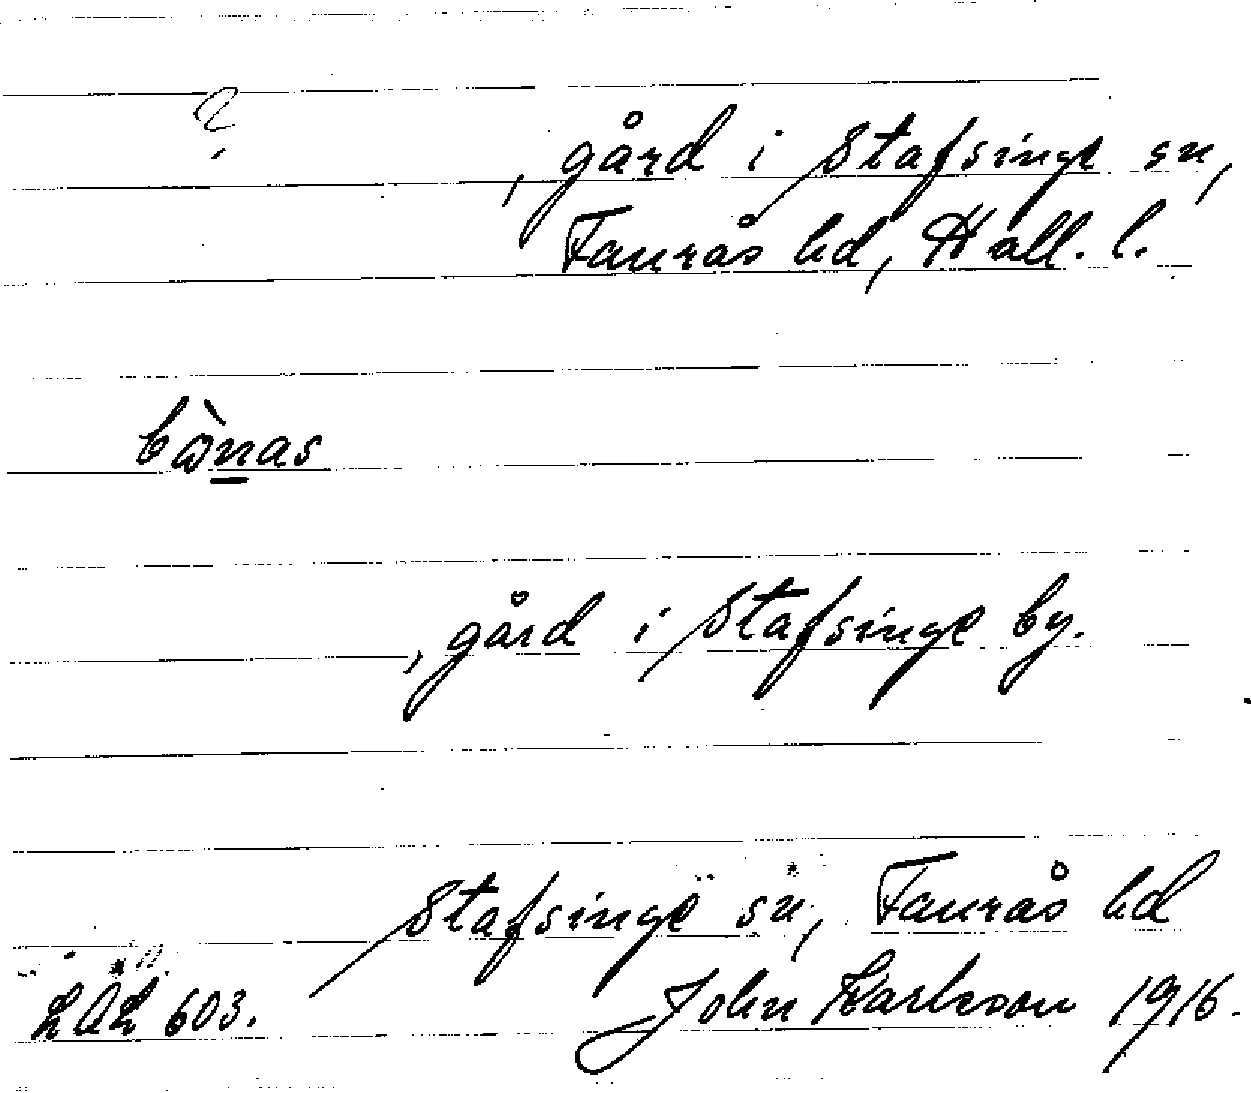 ?
, gård i Stafsinge sn,
Faurås hd, Hall. l.
bὼnas
, gård i Stafsinge by.
Stafsinge sn, Faurås hd
LUL 603. John Karlsson 1916.